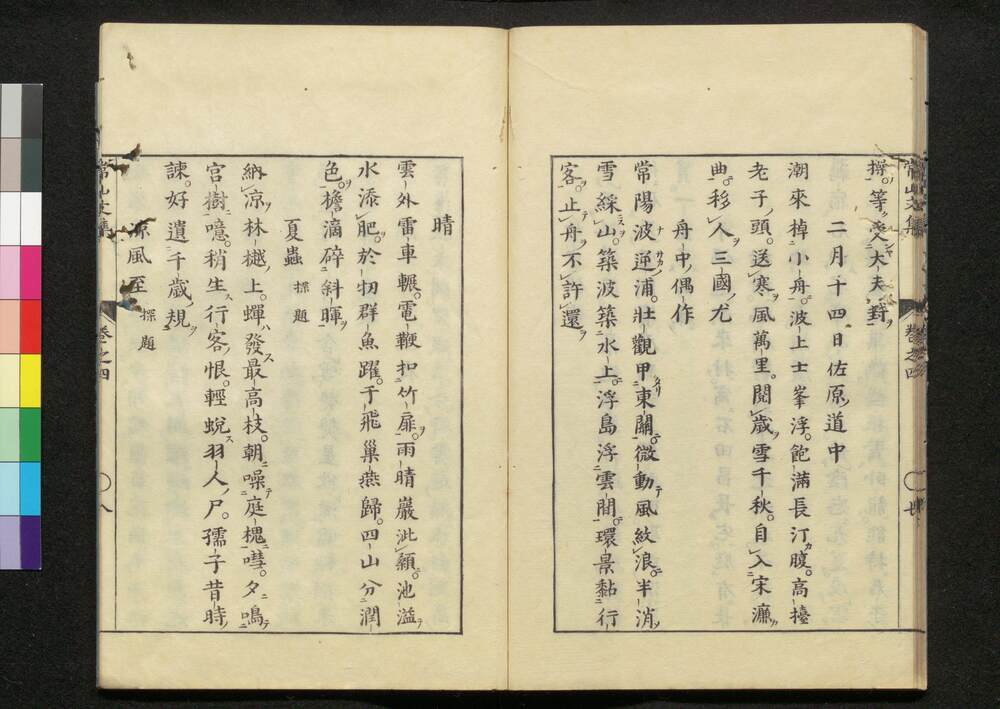 常山文集
卷之四
搏等受大夫封
二月十四日佐原道中
潮來棹小舟波上士峯浮飽滿長汀腹高擡
老子頭送寒風萬里閱歲雪千秋自入宋濂
曲移人三國尤
舟中偶作
常陽波逆浦壯觀甲東關微動風紋浪半消
雪綵山築波築水上浮島浮雲間環景黏行
客止舟不許還
晴
雲外雷車輾電鞭扣竹扉雨晴巖泚顙池溢
水添肥於牣群魚躍于飛巢燕歸四山分潤
色檐滴碎斜暉
夏蟲 探題
納凉林樾上蟬發最高枝朝噪庭槐嘒夕鳴
宮樹噫稍生行客恨輕蛻羽人尸孺子昔時
諫好遺千歲規
凉風至 探題
常山文集
卷之四
八